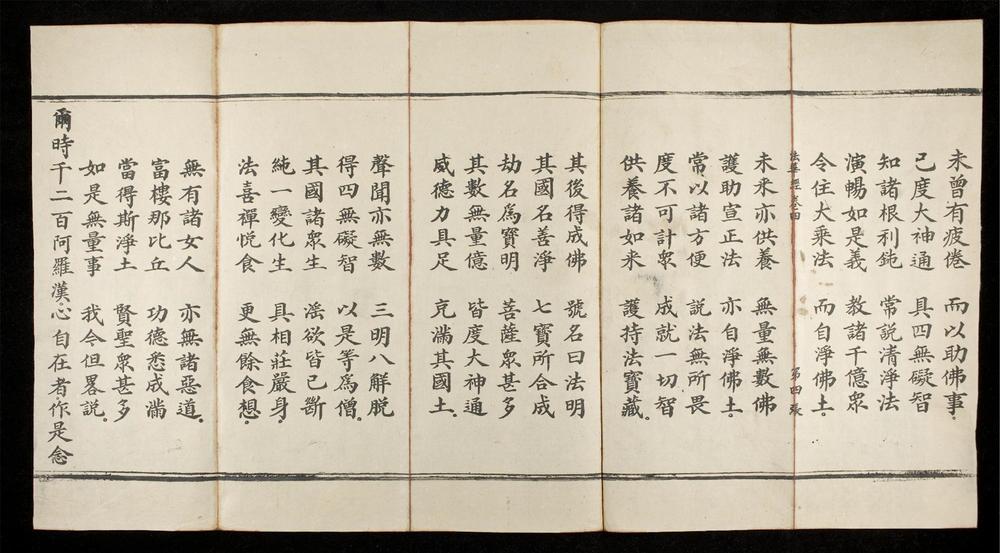 未曾有疲倦　而以助佛事。
已度大神通　具四無礙智
知諸根利鈍　常說清淨法
演暢如是義　教諸千億衆
令住大乘法　而自淨佛土。
法華經卷四　第四張
未来亦供養　無量無數佛
護助宣正法　亦自淨佛土。
常以諸方便　說法無所畏
度不可計衆　成就一切智
供養諸如来　護持法寶藏。
其後得成佛　號名曰法明
其國名善淨　七寶所合成
劫名爲寶明　菩薩衆甚多
其數無量億　皆度大神通
威德力具足　充滿其國土。
聲聞亦無數　三明八解脫
得四無礙智　以是等爲僧。
其國諸衆生　婬欲皆已斷
純一變化生　具相莊嚴身。
法喜禪悅食　更無餘食想。
無有諸女人　亦無諸惡道。
富樓那比丘　功德悉成滿
當得斯淨土　賢聖衆甚多
如是無量事　我今但畧說。
爾時千二百阿羅漢心自在者作是念